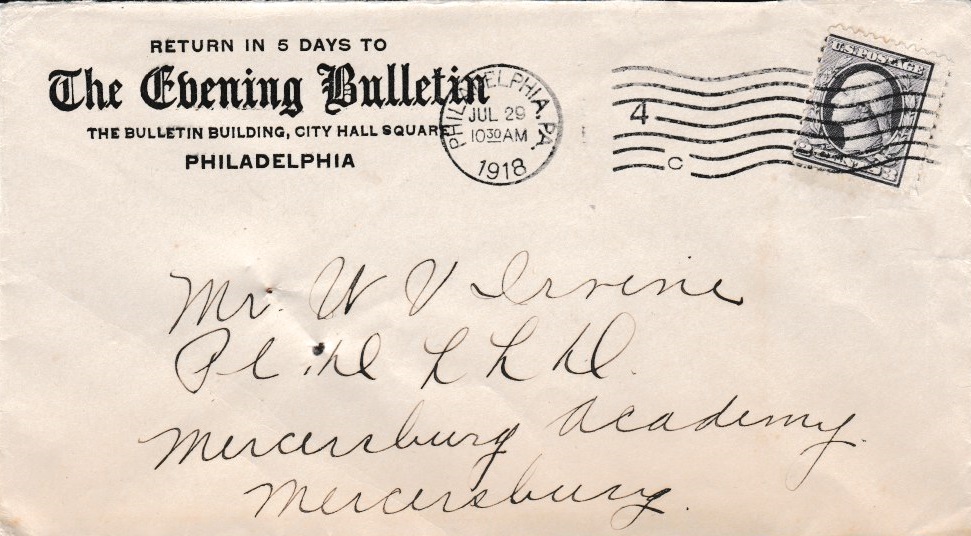 RETURN IN 5 DAYS TO
The Evening Bulletin
THE BULLETIN BUILDING, CITY HALL SQUARE
PHILADELPHIA
PHILADELPHIA, PA.
JUL 29
10 30 AM
1918
4
C
U.S. POSTAGE
CENTS
Mr. W V Irvine
Ph. D L L D.
Mercersburg Academy.
Mercersburg.